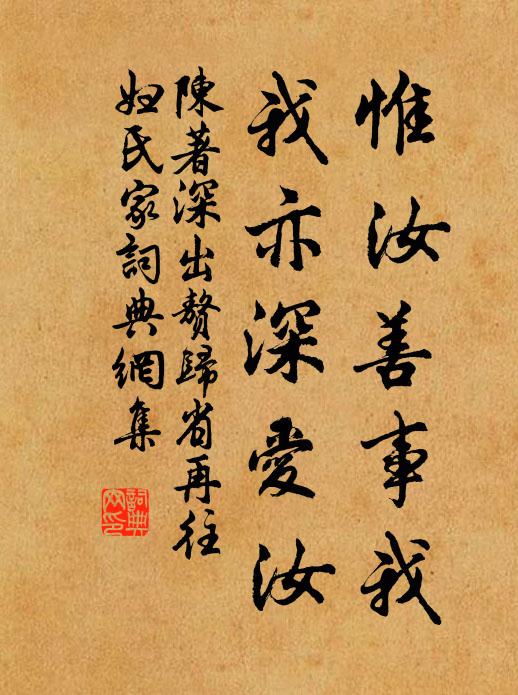 惟汝善事我
我亦深愛汝
陳著深出贅歸省再往
妞氏家詞典網集
詞典網印